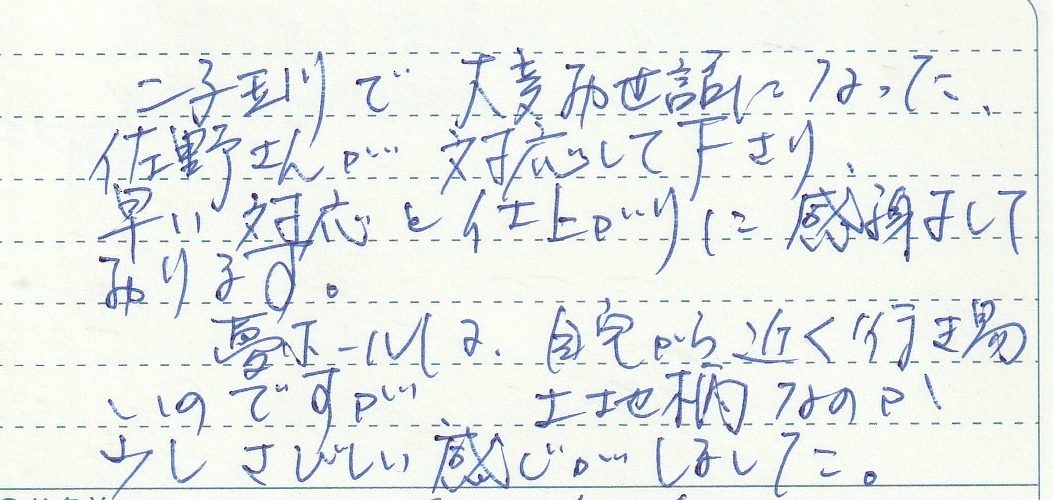 二子玉川で大変お世話になった、
佐野さんが対応して下さり、
早い対応と仕上がりに感謝して
おります。
夢ホールは、自宅から近く行き易
いのですが、土地柄なのか
少しさびしい感じがしました。